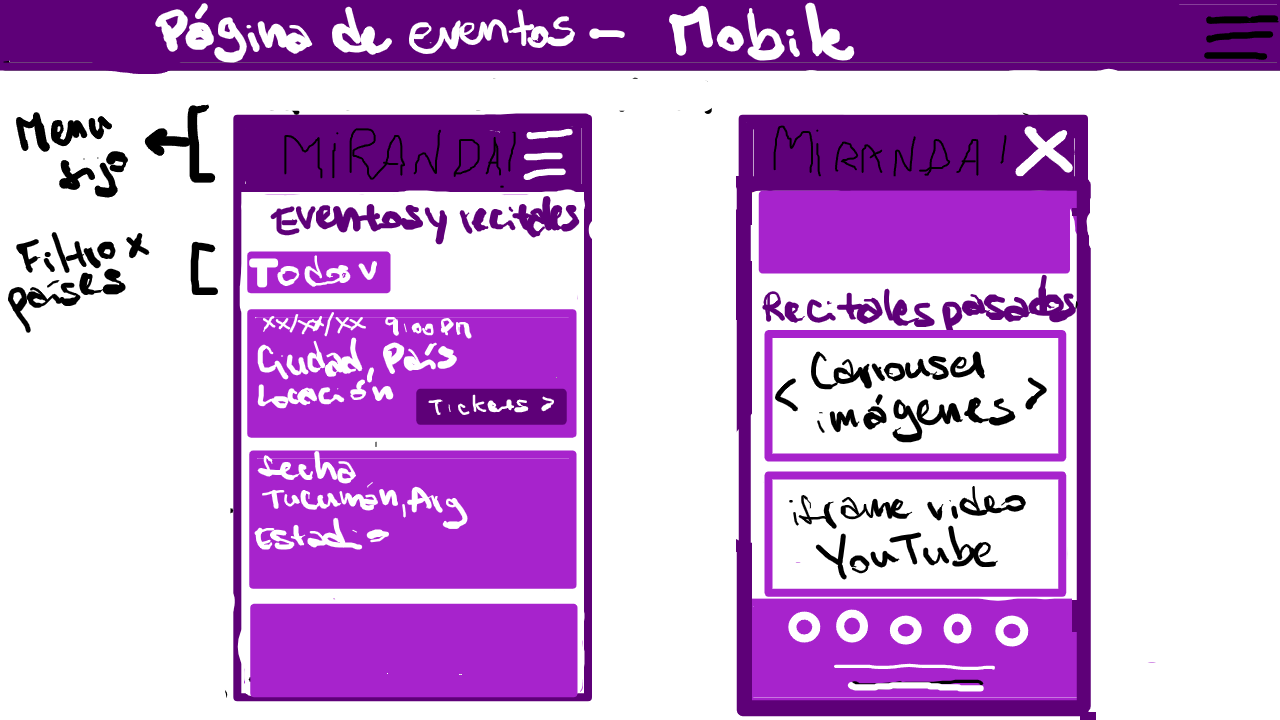 Página de eventos - Mobile
Menu
fijo
Filtro x
países
MiRANDA!
Eventos y recitales
Todos v
xx/xx/xx 9:00 Pm
Ciudad, País
Locación
Tickets >
fecha
Tucumán, Arg
Estadio
MiRANDA!
X
Recitales pasados
< Carrousel
imágenes >
iframe video
YouTube